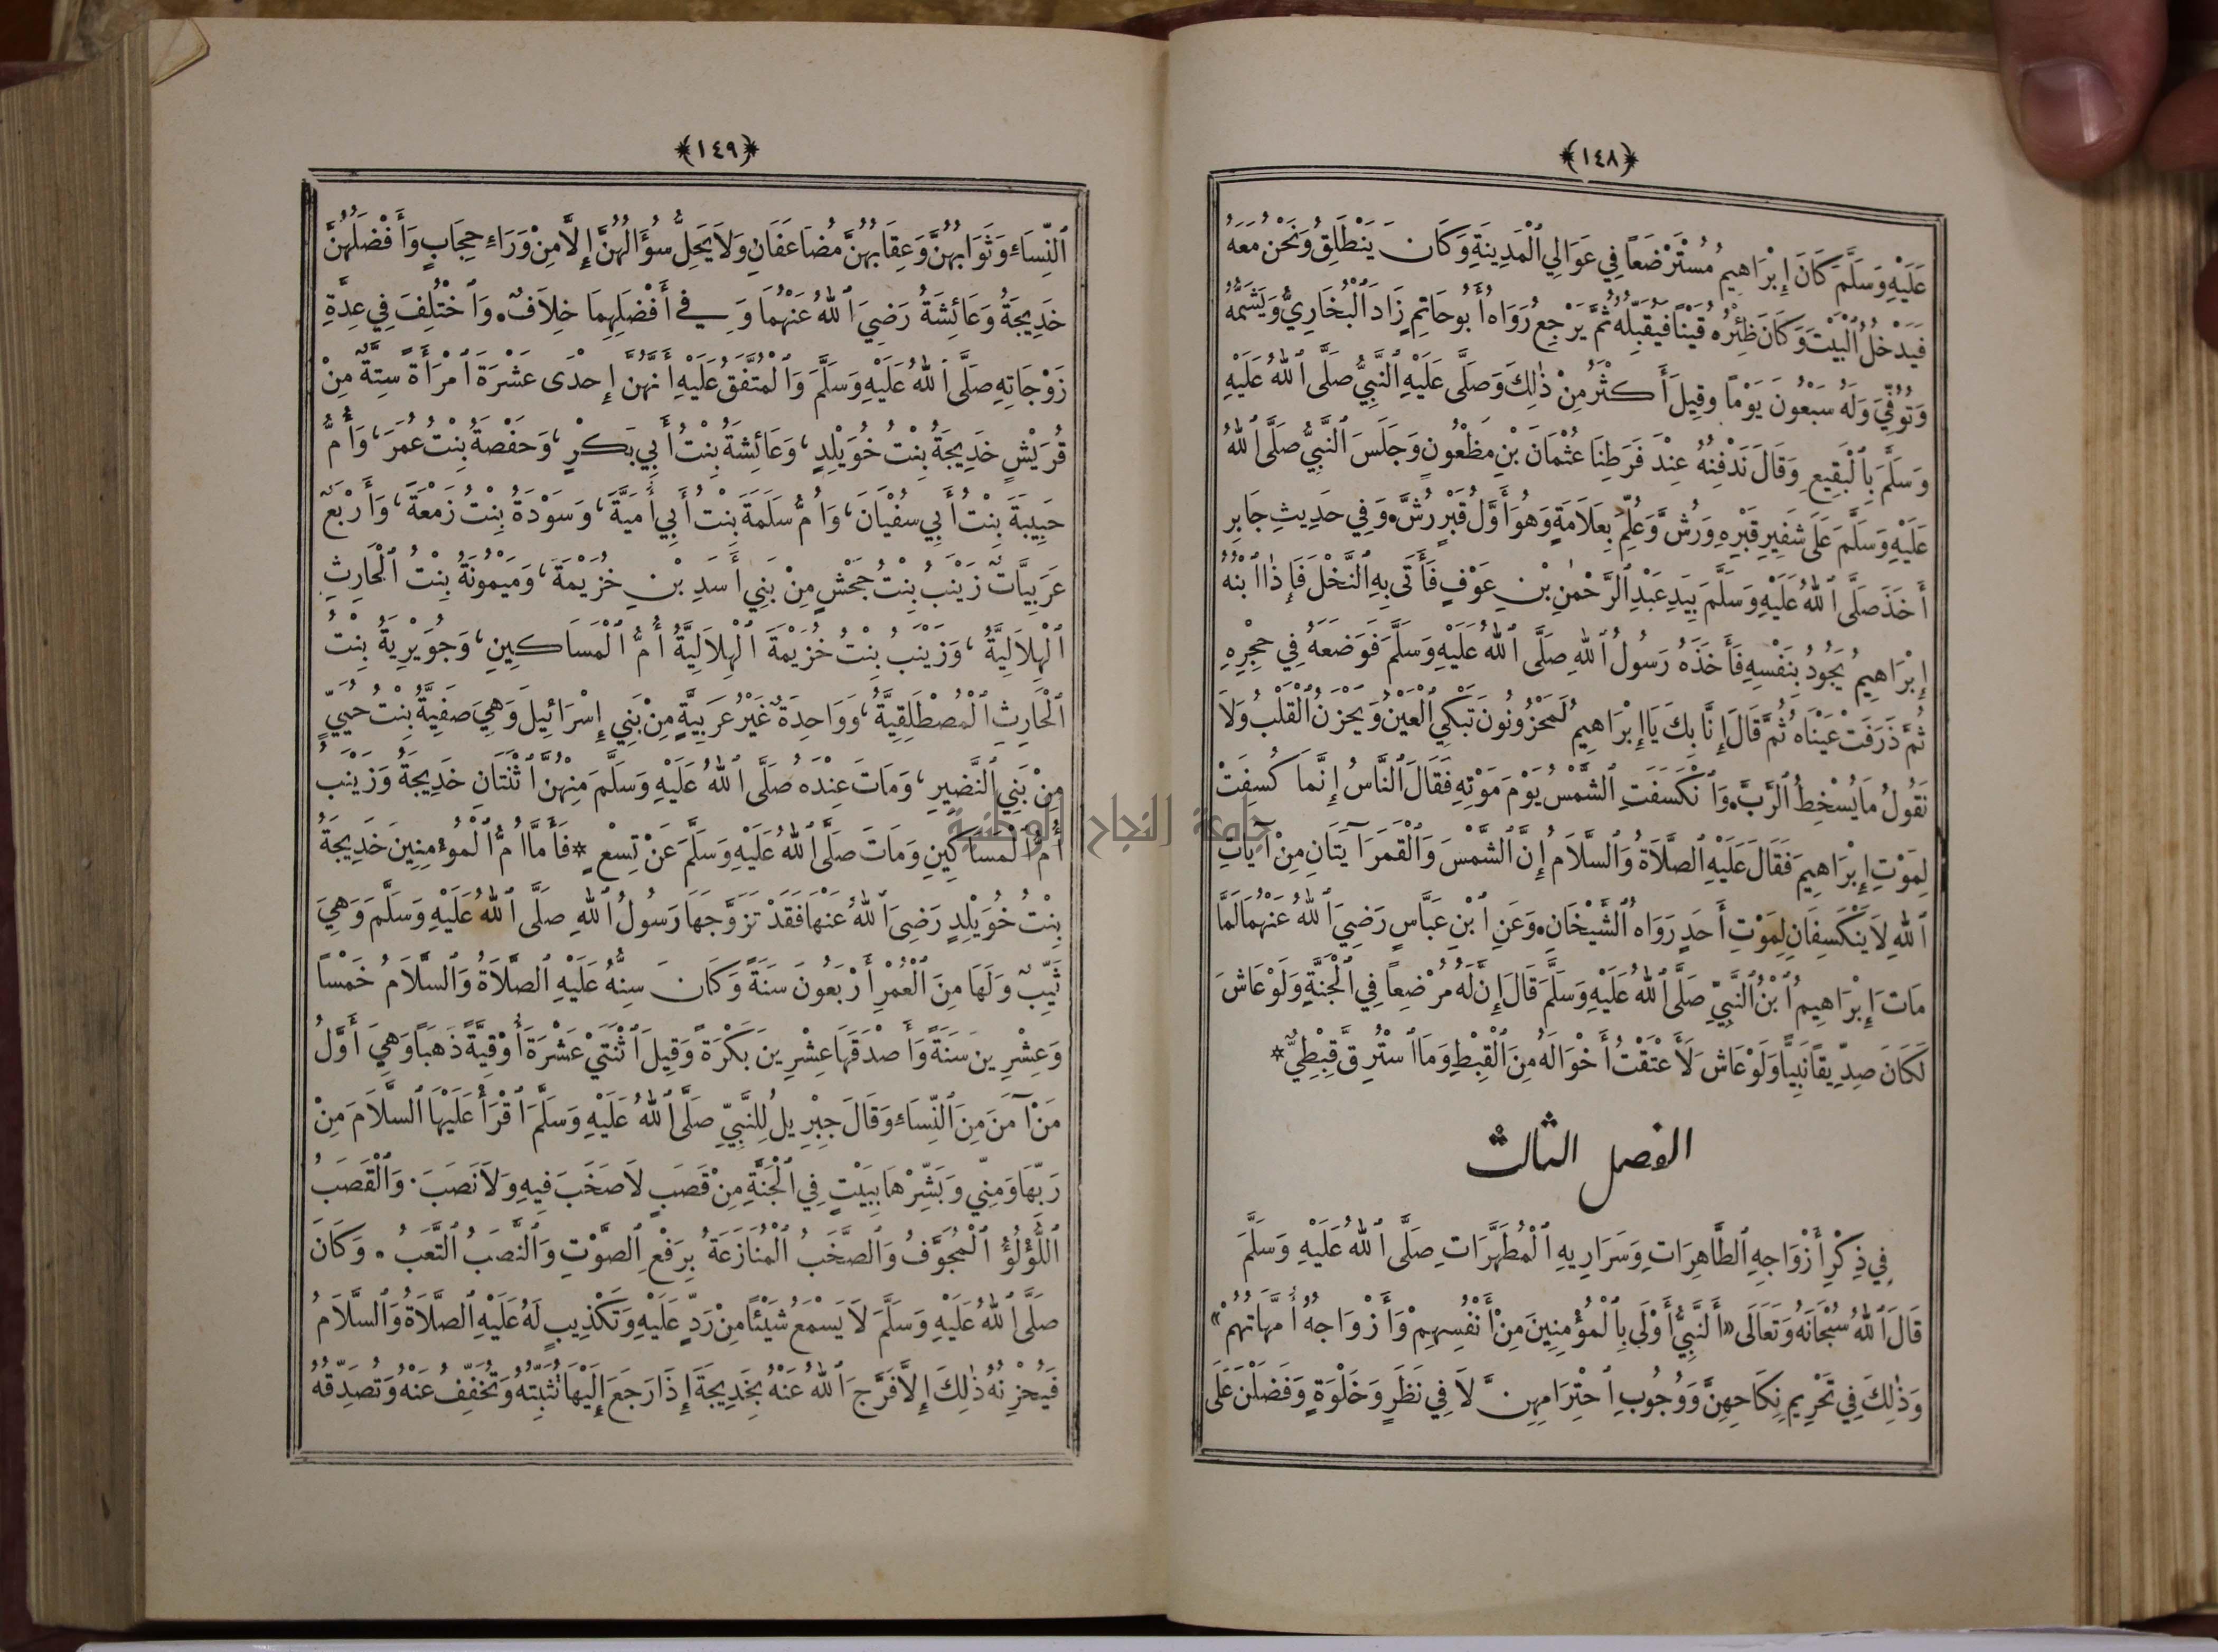 ﴿١٤٨﴾
عَلَيْهِ وَسَلَّمَ كَانَ إِبْرَاهِيمُ مُسْتَرْضَعًا فِي عَوَالِي ٱلْمَدِينَةِ وَكَانَ يَنْطَلِقُ وَنَحْنُ مَعَهُ
فَيَدْخُلُ ٱلْبَيْتَ وَكَانَ ظِئْرُهُ قَيْنًا فَيُقَبِّلُهُ ثُمَّ يَرْجِعُ رَوَاهُ أَبُو حَاتِمٍ زَادَ ٱلْبُخَارِيُّ وَيَشَمُّهُ
وَتُوُفِّيَ وَلَهُ سَبْعُونَ يَوْمًا وَقِيلَ أَكْثَرُ مِنْ ذٰلِكَ وَصَلَّى عَلَيْهِ ٱلنَّبِيُّ صَلَّى ٱللهُ عَلَيْهِ
وَسَلَّمَ بِٱلْبَقِيعِ وَقَالَ نَدْفِنُهُ عِنْدَ فَرَطِنَا عُثْمَانَ بْنِ مَظْعُونٍ وَجَلَسَ ٱلنَّبِيُّ صَلَّى ٱللهُ
عَلَيْهِ وَسَلَّمَ عَلَى شَفِيرِ قَبْرِهِ وَرُشَّ وَعُلِّمَ بِعَلَامَةٍ وَهُوَ أَوَّلُ قَبْرٍ رُشَّ. وَفِي حَدِيثِ جَابِرٍ
أَخَذَ صَلَّى ٱللهُ عَلَيْهِ وَسَلَّمَ بِيَدِ عَبْدِ ٱلرَّحْمٰنِ بْنِ عَوْفٍ فَأَتَى بِهِ ٱلنَّخْلَ فَإِذَا ٱبْنُهُ
إِبْرَاهِيمُ يَجُودُ بِنَفْسِهِ فَأَخَذَهُ رَسُولُ ٱللهِ صَلَّى ٱللهُ عَلَيْهِ وَسَلَّمَ فَوَضَعَهُ فِي حِجْرِهِ
ثُمَّ ذَرَفَتْ عَيْنَاهُ ثُمَّ قَالَ إِنَّا بِكَ يَا إِبْرَاهِيمُ لَمَحْزُونُونَ تَبْكِي ٱلْعَيْنُ وَيَحْزَنُ ٱلْقَلْبُ وَلَا
نَقُولُ مَا يُسْخِطُ ٱلرَّبَّ. وَٱنْكَسَفَتِ ٱلشَّمْسُ يَوْمَ مَوْتِهِ فَقَالَ ٱلنَّاسُ إِنَّمَا كُسِفَتْ
لِمَوْتِ إِبْرَاهِيمَ فَقَالَ عَلَيْهِ ٱلصَّلَاةُ وَٱلسَّلَامُ إِنَّ ٱلشَّمْسَ وَٱلْقَمَرَ آيَتَانِ مِنْ آيَاتِ
ٱللهِ لَا يَنْكَسِفَانِ لِمَوْتِ أَحَدٍ رَوَاهُ ٱلشَّيْخَانِ. وَعَنِ ٱبْنِ عَبَّاسٍ رَضِيَ ٱللهُ عَنْهُمَا لَمَّا
مَاتَ إِبْرَاهِيمُ ٱبْنُ ٱلنَّبِيِّ صَلَّى ٱللهُ عَلَيْهِ وَسَلَّمَ قَالَ إِنَّ لَهُ مُرْضِعًا فِي ٱلْجَنَّةِ وَلَوْ عَاشَ
لَكَانَ صِدِّيقًا نَبِيًّا وَلَوْ عَاشَ لَأَعْتَقْتُ أَخْوَالَهُ مِنَ ٱلْقِبْطِ وَمَا ٱسْتُرِقَّ قِبْطِيٌّ *
الفصل الثالث
فِي ذِكْرِ أَزْوَاجِهِ ٱلطَّاهِرَاتِ وَسَرَارِيهِ ٱلْمُطَهَّرَاتِ صَلَّى ٱللهُ عَلَيْهِ وَسَلَّمَ
قَالَ ٱللهُ سُبْحَانَهُ وَتَعَالَى «أَلنَّبِيُّ أَوْلَى بِٱلْمُؤْمِنِينَ مِنْ أَنْفُسِهِمْ وَأَزْوَاجُهُ أُمَّهَاتُهُمْ»
وَذٰلِكَ فِي تَحْرِيمِ نِكَاحِهِنَّ وَوُجُوبِ ٱحْتِرَامِهِنَّ لَا فِي نَظَرٍ وَخَلْوَةٍ وَفَضَلْنَ عَلَى
﴿١٤٩﴾
ٱلنِّسَاءِ وَثَوَابُهُنَّ وَعِقَابُهُنَّ مُضَاعَفَانِ وَلَا يَحِلُّ سُؤَالُهُنَّ إِلَّا مِنْ وَرَاءِ حِجَابٍ وَأَفْضَلُهُنَّ
خَدِيجَةُ وَعَائِشَةُ رَضِيَ ٱللهُ عَنْهُمَا وَفِي أَفْضَلِهِمَا خِلَافٌ. وَٱخْتُلِفَ فِي عِدَّةِ
زَوْجَاتِهِ صَلَّى ٱللهُ عَلَيْهِ وَسَلَّمَ وَٱلْمُتَّفَقُ عَلَيْهِ أَنَّهُنَّ إِحْدَى عَشْرَةَ ٱمْرَأَةً سِتَّةٌ مِنْ
قُرَيْشٍ خَدِيجَةُ بِنْتُ خُوَيْلِدٍ، وَعَائِشَةُ بِنْتُ أَبِي بَكْرٍ، وَحَفْصَةُ بِنْتُ عُمَرَ، وَأُمُّ
حَبِيبَةَ بِنْتُ أَبِي سُفْيَانَ، وَأُمُّ سَلَمَةَ بِنْتُ أَبِي أُمَيَّةَ، وَسَوْدَةُ بِنْتُ زَمْعَةَ، وَأَرْبَعٌ
عَرَبِيَّاتٌ زَيْنَبُ بِنْتُ جَحْشٍ مِنْ بَنِي أَسَدِ بْنِ خُزَيْمَةَ، وَمَيْمُونَةُ بِنْتُ ٱلْحَارِثِ
ٱلْهِلَالِيَّةُ، وَزَيْنَبُ بِنْتُ خُزَيْمَةَ ٱلْهِلَالِيَّةُ أُمُّ ٱلْمَسَاكِينِ، وَجُوَيْرِيَةُ بِنْتُ
ٱلْحَارِثِ ٱلْمُصْطَلِقِيَّةُ، وَوَاحِدَةٌ غَيْرُ عَرَبِيَّةٍ مِنْ بَنِي إِسْرَائِيلَ وَهِيَ صَفِيَّةُ بِنْتُ حُيَيٍّ
مِنْ بَنِي ٱلنَّضِيرِ، وَمَاتَ عِنْدَهُ صَلَّى ٱللهُ عَلَيْهِ وَسَلَّمَ مِنْهُنَّ ٱثْنَتَانِ خَدِيجَةُ وَزَيْنَبُ
أُمُّ ٱلْمَسَاكِينِ وَمَاتَ صَلَّى ٱللهُ عَلَيْهِ وَسَلَّمَ عَنْ تِسْعٍ * فَأَمَّا أُمُّ ٱلْمُؤْمِنِينَ خَدِيجَةُ
بِنْتُ خُوَيْلِدٍ رَضِيَ ٱللهُ عَنْهَا فَقَدْ تَزَوَّجَهَا رَسُولُ ٱللهِ صَلَّى ٱللهُ عَلَيْهِ وَسَلَّمَ وَهِيَ
ثَيِّبٌ وَلَهَا مِنَ ٱلْعُمْرِ أَرْبَعُونَ سَنَةً وَكَانَ سِنُّهُ عَلَيْهِ ٱلصَّلَاةُ وَٱلسَّلَامُ خَمْسًا
وَعِشْرِينَ سَنَةً وَأَصْدَقَهَا عِشْرِينَ بَكْرَةً وَقِيلَ ٱثْنَتَيْ عَشْرَةَ أُوْقِيَّةً ذَهَبًا وَهِيَ أَوَّلُ
مَنْ آمَنَ مِنَ ٱلنِّسَاءِ وَقَالَ جِبْرِيلُ لِلنَّبِيِّ صَلَّى ٱللهُ عَلَيْهِ وَسَلَّمَ ٱقْرَأْ عَلَيْهَا ٱلسَّلَامَ مِنْ
رَبِّهَا وَمِنِّي وَبَشِّرْهَا بِبَيْتٍ فِي ٱلْجَنَّةِ مِنْ قَصَبٍ لَا صَخَبَ فِيهِ وَلَا نَصَبَ. وَٱلْقَصَبُ
ٱللُّؤْلُؤُ ٱلْمُجَوَّفُ وَٱلصَّخَبُ ٱلْمُنَازَعَةُ بِرَفْعِ ٱلصَّوْتِ وَٱلنَّصَبُ ٱلتَّعَبُ. وَكَانَ
صَلَّى ٱللهُ عَلَيْهِ وَسَلَّمَ لَا يَسْمَعُ شَيْئًا مِنْ رَدٍّ عَلَيْهِ وَتَكْذِيبٍ لَهُ عَلَيْهِ ٱلصَّلَاةُ وَٱلسَّلَامُ
فَيُحْزِنُهُ ذٰلِكَ إِلَّا فَرَّجَ ٱللهُ عَنْهُ بِخَدِيجَةَ إِذَا رَجَعَ إِلَيْهَا تُثَبِّتُهُ وَتُخَفِّفُ عَنْهُ وَتُصَدِّقُهُ
جامعة النجاح الوطنية